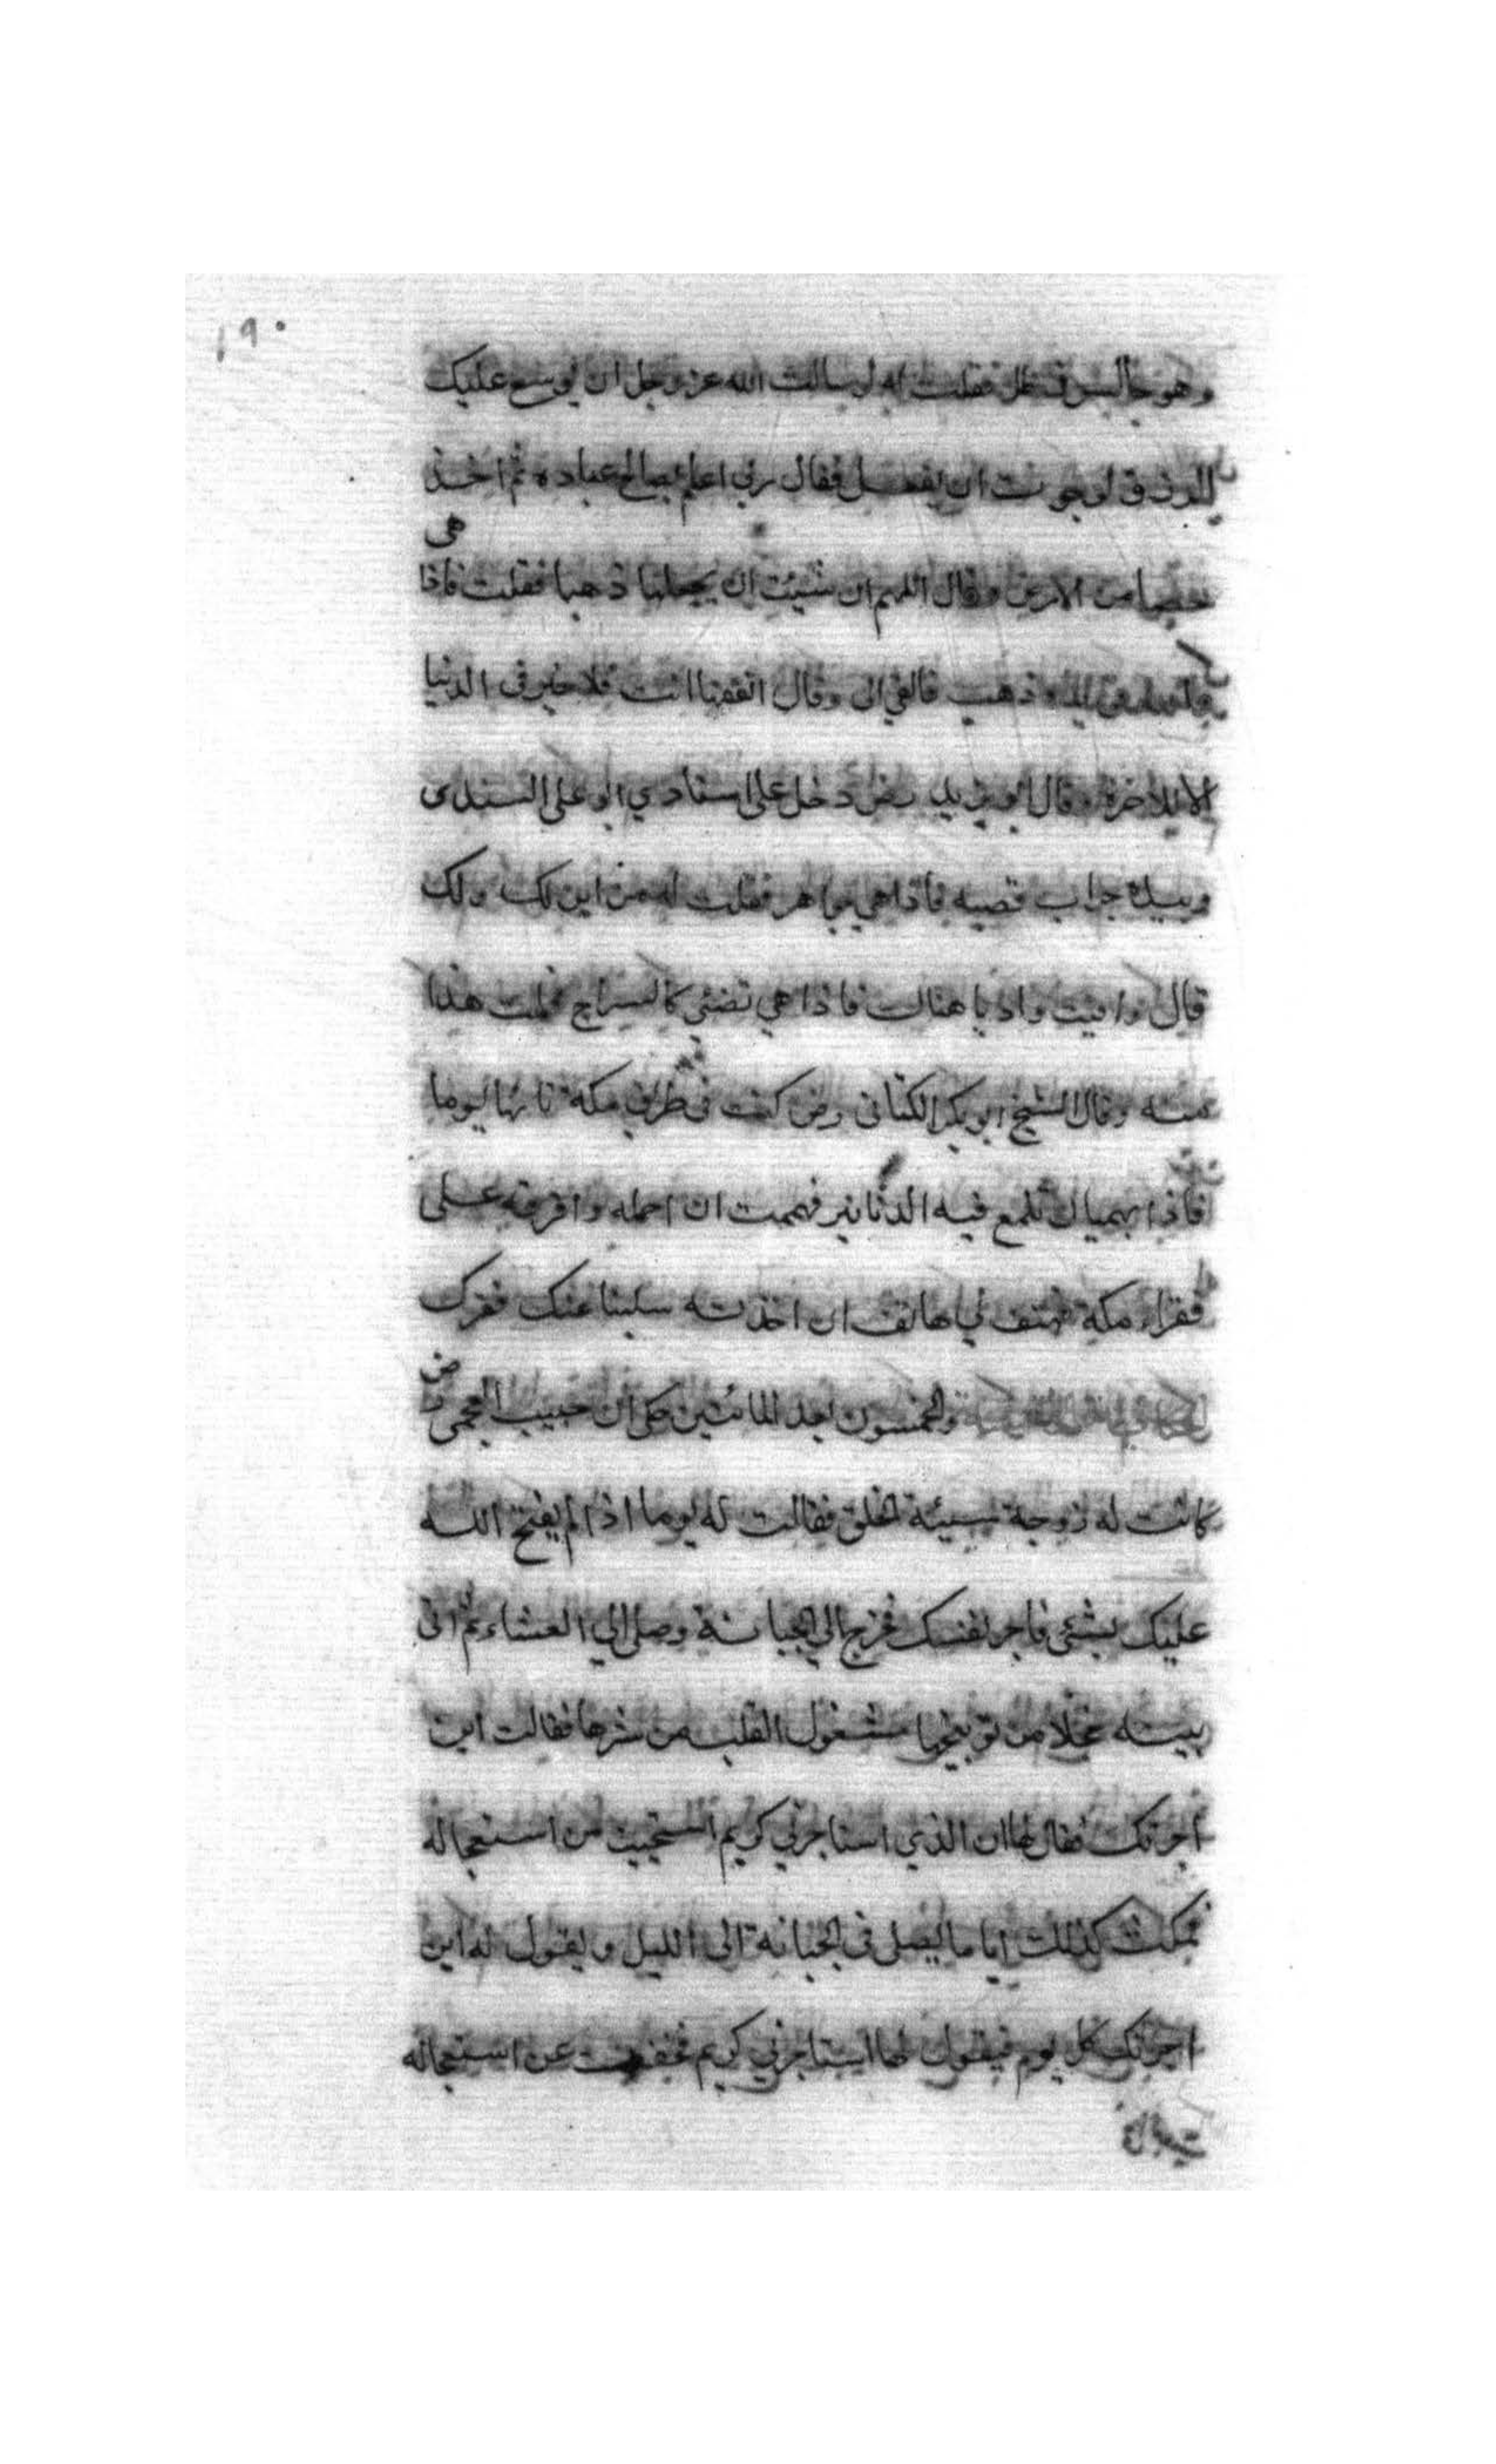 ١٩٠
وهو جالس في ظل فقلت له لو سالت الله عز وجل ان يوسع عليك
الرزق لرجوت ان يفعل فقال ربي اعلم بصالح عباده ثم اخذ
هى
حصا من الارض وقال اللهم ان شئت ان يجعلها ذهبا فقلت فاذا
ذهب فالقي الى وقال انفقها انت فلا خير في الدنيا
الا للاخرة وقال ابو يزيد رض دخل على استادي ابو على السندى
وبيده جراب فصبه فاذا هي جواهر فقلت له من اين لك ولك
قال وافيت واديا هناك فاذا هي تضئى كالسراج فحملت هذا
منه وقال الشيخ ابو بكر الكتانى رض كنت في طريق مكة نائها يوما
فاذا بهميان تلمع فيه الدنانير فهممت ان احمله وافرقه على
فقراء مكة فهتف بي هاتف ان اخذته سلبنا عنك فقرك
رض
الحكاية والخمسون بعد المائتين حكى ان حبيب العجمى
كانت له زوجة سيئة الخلق فقالت له يوما اذا لم يفتح الله
عليك بشئى فاجر نفسك فخرج الي الجبانة وصلى الي العشاء ثم اتى
بيته خجلا من توبيخها مشغول القلب من شرها فقالت اين
اجرتك فقال لها ان الذي استاجرني كريم استحييت من استعجاله
فمكث كذلك اياما يصلى في الجبانة الى الليل ويقول له اين
اجرتك كل يوم فيقول لها استاجرني كريم عن استعجاله